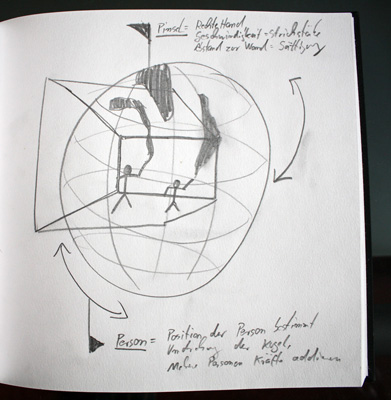 Pinsel = Rechte Hand
Geschwindigkeit = Strichstärke
Abstand zur Wand = Sättigung
Person = Position der Person bestimmt
Umdrehung der Kugel,
Mehre Personen Kräfte addieren